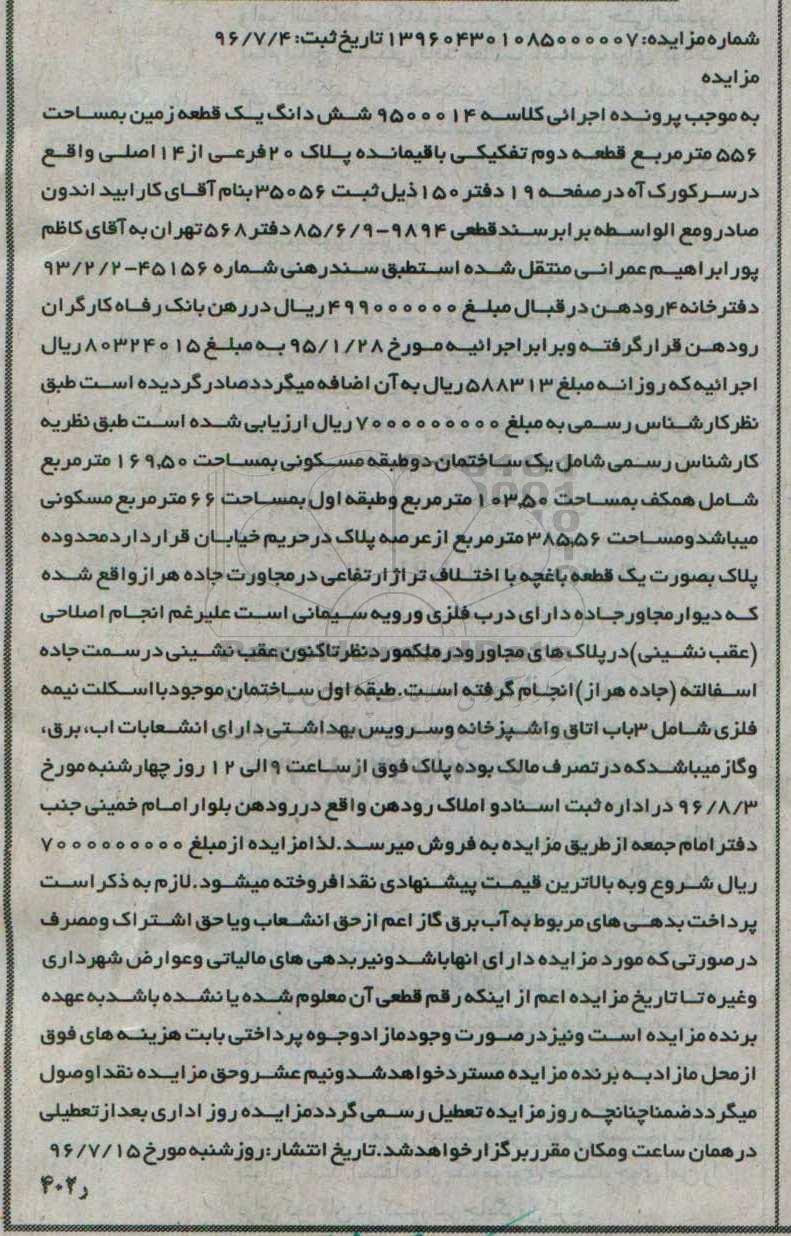 شماره مزایده: ۱۳۹۶۰۴۳۰۱۰۸۵۰۰۰۰۰۷ تاریخ ثبت: ۹۶/۷/۴
مزایده
به موجب پرونده اجرائی کلاسه ۹۵۰۰۰۱۴ شش دانگ یک قطعه زمین بمساحت
۵۵۶ مترمربع قطعه دوم تفکیکی باقیمانده پلاک ۲۰ فرعی از ۱۴ اصلی واقع
در سرکورک آه در صفحه ۱۹ دفتر ۱۵۰ ذیل ثبت ۳۵۰۵۶ بنام آقای کارابید اندون
صادر ومع الواسطه برابر سند قطعی ۹۸۹۴-۸۵/۶/۹ دفتر ۵۶۸ تهران به آقای کاظم
پور ابراهیم عمرانی منتقل شده است طبق سند رهنی شماره ۴۵۱۵۶-۹۳/۲/۲
دفترخانه ۴ رودهن در قبال مبلغ ۴۹۹۰۰۰۰۰۰ ریال در رهن بانک رفاه کارگران
رودهن قرار گرفته وبرابر اجرائیه مورخ ۹۵/۱/۲۸ به مبلغ ۸۰۳۲۴۰۱۵ ریال
اجرائیه که روزانه مبلغ ۵۸۸۳۱۳ ریال به آن اضافه میگردد صادر گردیده است طبق
نظر کارشناس رسمی به مبلغ ۷۰۰۰۰۰۰۰۰۰ ریال ارزیابی شده است طبق نظریه
کارشناس رسمی شامل یک ساختمان دوطبقه مسکونی بمساحت ۱۶۹,۵۰ مترمربع
شامل همکف بمساحت ۱۰۳,۵۰ مترمربع وطبقه اول بمساحت ۶۶ مترمربع مسکونی
میباشد ومساحت ۳۸۵,۵۶ مترمربع از عرصه پلاک در حریم خیابان قرار دارد محدوده
پلاک بصورت یک قطعه باغچه با اختلاف تراز ارتفاعی در مجاورت جاده هراز واقع شده
که دیوار مجاور جاده دارای درب فلزی ورویه سیمانی است علیرغم انجام اصلاحی
(عقب نشینی) در پلاک های مجاور ودر ملکمورد نظر تاکنون عقب نشینی در سمت جاده
اسفالته (جاده هراز) انجام گرفته است. طبقه اول ساختمان موجود با اسکلت نیمه
فلزی شامل ۳باب اتاق واشپزخانه وسرویس بهداشتی دارای انشعابات اب، برق،
وگاز میباشد که در تصرف مالک بوده پلاک فوق از ساعت ۹ الی ۱۲ روز چهارشنبه مورخ
۹۶/۸/۳ در اداره ثبت اسناد و املاک رودهن واقع در رودهن بلوار امام خمینی جنب
دفتر امام جمعه از طریق مزایده به فروش میرسد. لذا مزایده از مبلغ ۷۰۰۰۰۰۰۰۰۰
ریال شروع وبه بالاترین قیمت پیشنهادی نقدا فروخته میشود. لازم به ذکر است
پرداخت بدهی های مربوط به آب برق گاز اعم از حق انشعاب ویا حق اشتراک ومصرف
در صورتی که مورد مزایده دارای انها باشد ونیر بدهی های مالیاتی وعوارض شهرداری
وغیره تا تاریخ مزایده اعم از اینکه رقم قطعی آن معلوم شده یا نشده باشد به عهده
برنده مزایده است ونیز در صورت وجود مازاد وجوه پرداختی بابت هزینه های فوق
از محل مازاد به برنده مزایده مسترد خواهد شد ونیم عشر وحق مزایده نقدا وصول
میگردد ضمنا چنانچه روز مزایده تعطیل رسمی گردد مزایده روز اداری بعد از تعطیلی
در همان ساعت ومکان مقرر برگزار خواهد شد. تاریخ انتشار: روز شنبه مورخ ۹۶/۷/۱۵
ر۴۰۲